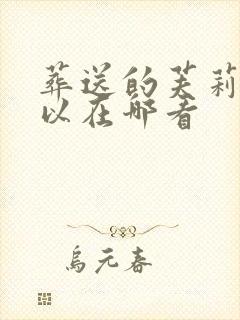 葬送的芙莉
以在哪看
乌元春